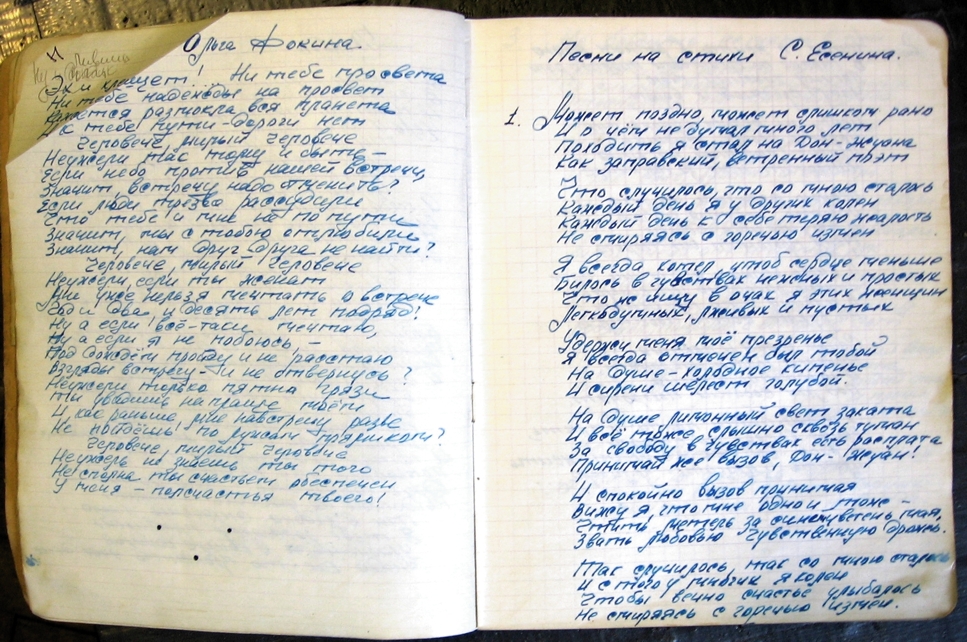 Ольга Фокина.
Эх и хлещет! Ни тебе просвета
Ни тебе надежды на просвет
Кажется размокла вся планета
И к тебе пути-дороги нет
Человече, милый человече
Неужели так тому и быть –
Если небо против нашей встречи,
Значит, встречу надо отменить?
Если люди трезво рассудили
Что тебе и мне не по пути
Значит, мы с тобою отлюбили
Значит, нам друг друга не найти?
Человече, милый человече
Неужели, если ты женат
Мне уже нельзя мечтать о встрече
Год и два, и десять лет подряд?
Ну а если всё-таки мечтаю,
Ну а если я не побоюсь –
Под дождём пройду и не растаю
Взгляды встречу – и не отвернусь?
Неужели только пятна грязи
Ты увидишь на платье моём
И как раньше, мне навстречу разве
Не пойдёшь по лужам прямиком?
Человече, милый человече
Неужель не знаешь ты того
Не сполна ты счастьем обеспечен
У меня – полсчастья твоего!
Песни на стихи С. Есенина.
1. Может поздно, может слишком рано
И о чём не думал много лет
Походить я стал на Дон-Жуана
Как заправский, ветренный поэт
Что случилось, что со мною сталось
Каждый день я у других колен
Каждый день к себе теряю жалость
Не смиряясь с горечью измен
Я всегда хотел, чтоб сердце меньше
Билось в чувствах нежных и простых
Что ж ищу в очах я этих женщин
Легкодумных, лживых и пустых
Удержи меня моё презренье
Я всегда отмечен был тобой
На душе – холодное кипенье
И сирени шелест голубой.
На душе лимонный свет заката
И всё тоже слышно сквозь туман
За свободу в чувствах есть расплата
Принимай же вызов, Дон-Жуан!
И спокойно вызов принимая
Вижу я, что мне одно и тоже –
Чтить метель за синий цветень мая,
Звать любовью чувственную дрожь.
Так случилось, так со мною сталось
И с того у многих я колен
Чтобы вечно счастье улыбалось
Не смиряясь с горечью измен.